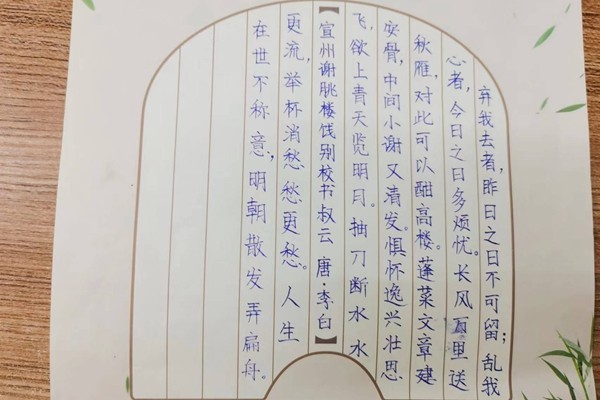 弃我去者,昨日之日不可留;乱我
心者,今日之日多烦忧。长风万里送
秋雁,对此可以酣高楼。蓬莱文章建
安骨,中间小谢又清发。惧怀逸兴壮思
飞,欲上青天览明月。抽刀断水水
【宣州谢朓楼饯别校书叔云 唐·李白】
更流,举杯消愁愁更愁。人生
在世不称意,明朝散发弄扁舟。